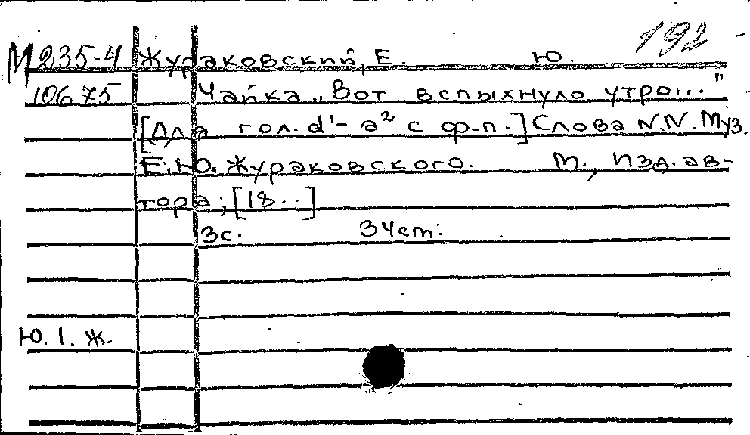 192
М 235-4 Жураковский, Е. Ю.
10675 Чайка „Вот вспыхнуло утро..."
[Для гол. d¹-a² с ф.-п.] Слова N.N. Муз.
Е.Ю. Жураковского. М., Изд. ав-
тора, [18..]
3с. 34ст.
Ю. I. Ж.